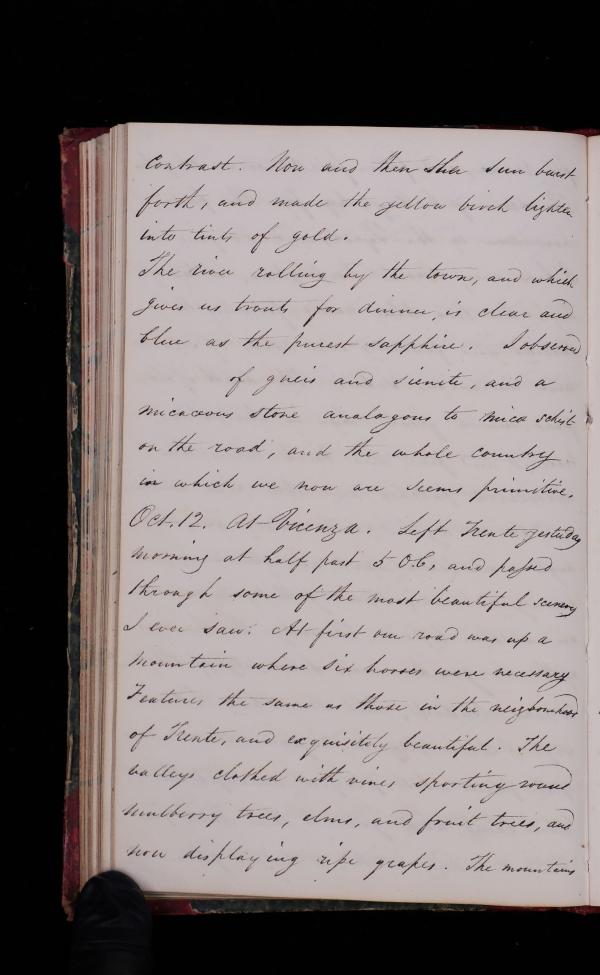 contrast. Now and then the sun burst
forth, and made the yellow birch lighten
into tints of gold.
The river rolling by the town, and which
gives us trouts for dinner, is clear and
blue as the purest sapphire. I observed
of gneis and sienite, and a
micaceous stone analagous to mica schist
on the road, and the whole country
in which we now are seems primitive.
Oct. 12. At Vicenza. Left Trente yesterday
morning at half past 5 O.C, and passed
through some of the most beautiful scenery
I ever saw: At first our road was up a
mountain where six horses were necessary
Features the same as those in the neigbourhood
of Trente, and exquisitely beautiful. The
valleys clothed with vines sporting round
mulberry trees, elms, and fruit trees, and
now displaying ripe grapes. The mountains